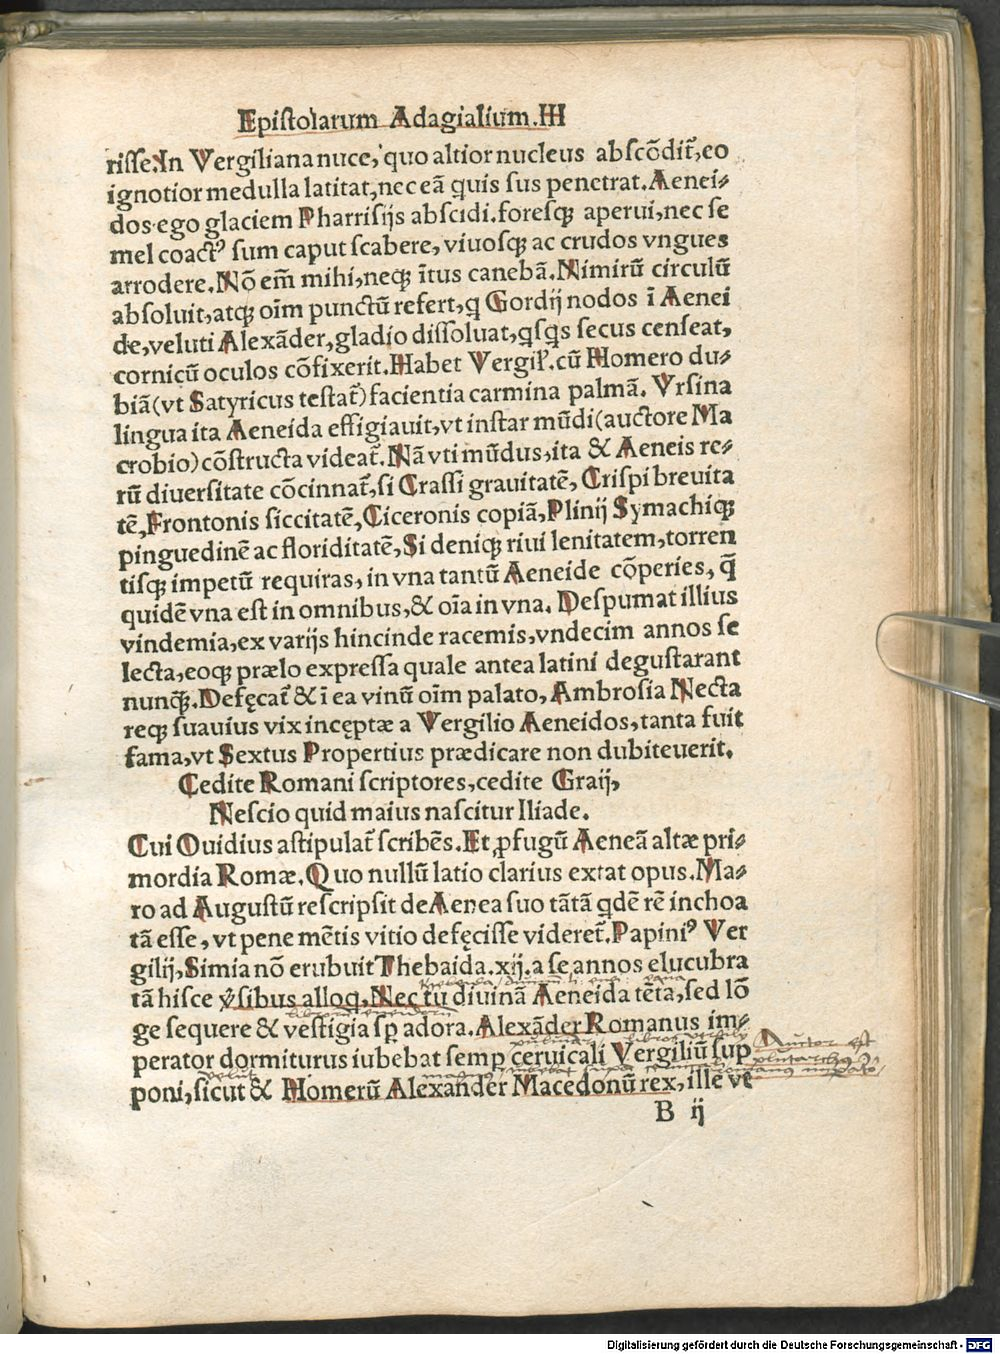 Epistolarum Adagialium.III
risse.In Vergiliana nuce, quo altior nucleus abscōdit̄, eo
ignotior medulla latitat, nec eā quis sus penetrat. Aenei⸗
dos ego glaciem Pharrisijs abscidi.foresqꝫ aperui, nec se
mel coactꝰ sum caput scabere, viuosqꝫ ac crudos vngues
arrodere. Nō em̄ mihi, neqꝫ ītus canebā. Nimirū circulū
absoluit, atqꝫ oīm punctū refert, q Gordij nodos ī Aenei
de, veluti Alexāder, gladio dissoluat, qsqs secus censeat,
cornicū oculos cōfixerit. Habet Vergil̄. cū Homero du⸗
biā (vt Satyricus testat̄) facientia carmina palmā. Vrsina
lingua ita Aeneida effigiauit, vt instar mūdi (auctore Ma
crobio) cōstructa videat̄. Nā vti mūdus, ita & Aeneis re⸗
rū diuersitate cōcinnat̄, si Crassi grauitatē, Crispi breuita
tē, Frontonis siccitatē, Ciceronis copiā, Plinij Symachiqꝫ
pinguedinē ac floriditatē, Si deniqꝫ riui lenitatem, torren
tisqꝫ impetū requiras, in vna tantū Aeneide cōperies, q̄
quidē vna est in omnibus, & oīa in vna. Despumat illius
vindemia, ex varijs hincinde racemis, vndecim annos se
lecta, eoqꝫ prælo expressa quale antea latini degustarant
nunqꝫ̄. Defęcat̄ & ī ea vinū oīm palato, Ambrosia Necta
reqꝫ suauius vix incęptæ a Vergilio Aeneidos, tanta fuit
fama, vt Sextus Propertius prædicare non dubiteuerit.
Cedite Romani scriptores, cedite Graij,
Nescio quid maius nascitur Iliade.
Cui Ouidius astipulat̄ scribēs. Et ꝓfugū Aeneā altæ pri⸗
mordia Romæ. Quo nullū latio clarius extat opus. Ma⸗
ro ad Augustū rescripsit de Aenea suo tātā qdē rē inchoa
tā esse, vt pene mētis vitio defęcisse videret̄. Papiniꝰ Ver
gilij, Simia nō erubuit Thebaida .xij. a se annos elucubra
tā hisce v̄sibus alloq, Nec tu diuinā Aeneida tēta, sed lō
ge sequere & vestigia sꝑ adora. Alexāder Romanus im⸗
perator dormiturus iubebat semꝑ ceruicali Vergiliū sup
Auctor est
plutarchus
poni, sicut & Homerū Alexander Macedonū rex, ille ve
B ij
Digitalisierung gefördert durch die Deutsche Forschungsgemeinschaft - DFG